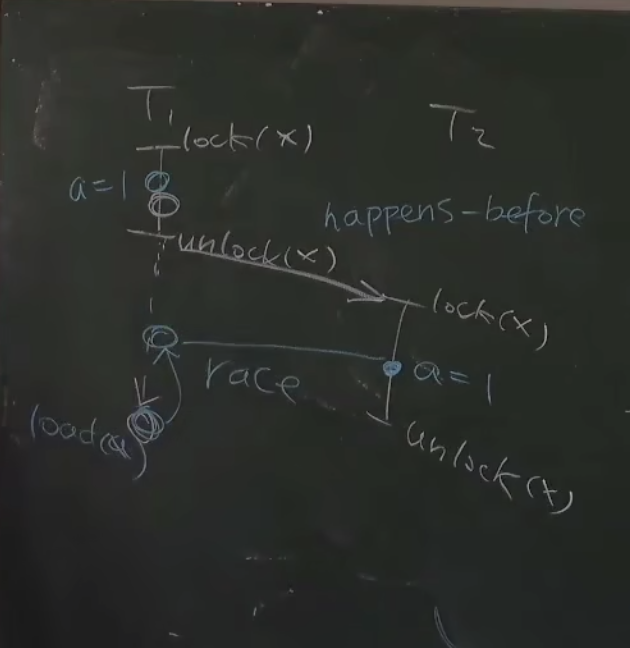 T₁
T₂
lock(x)
a=1
happens-before
unlock(x)
lock(x)
race
a=1
load(a)
unlock(x)